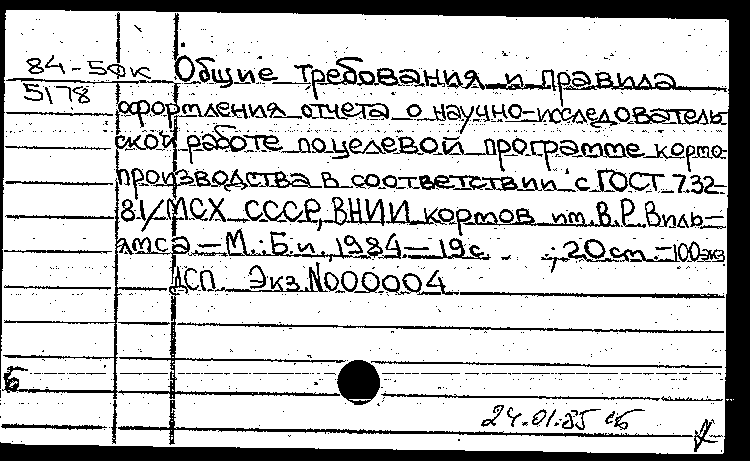 84-5ФК Общие требования и правила
5178
оформления отчета о научно-исследователь
ской работе по целевой программе кормо
производства в соответствии с ГОСТ 7.32-
81/МСХ СССР, ВНИИ кормов им. В.Р. Виль-
ямса.-М.: Б.и., 1984.-19с. ; 20 см.-100экз
ДСП. Экз.N000004
Б
24.01.85